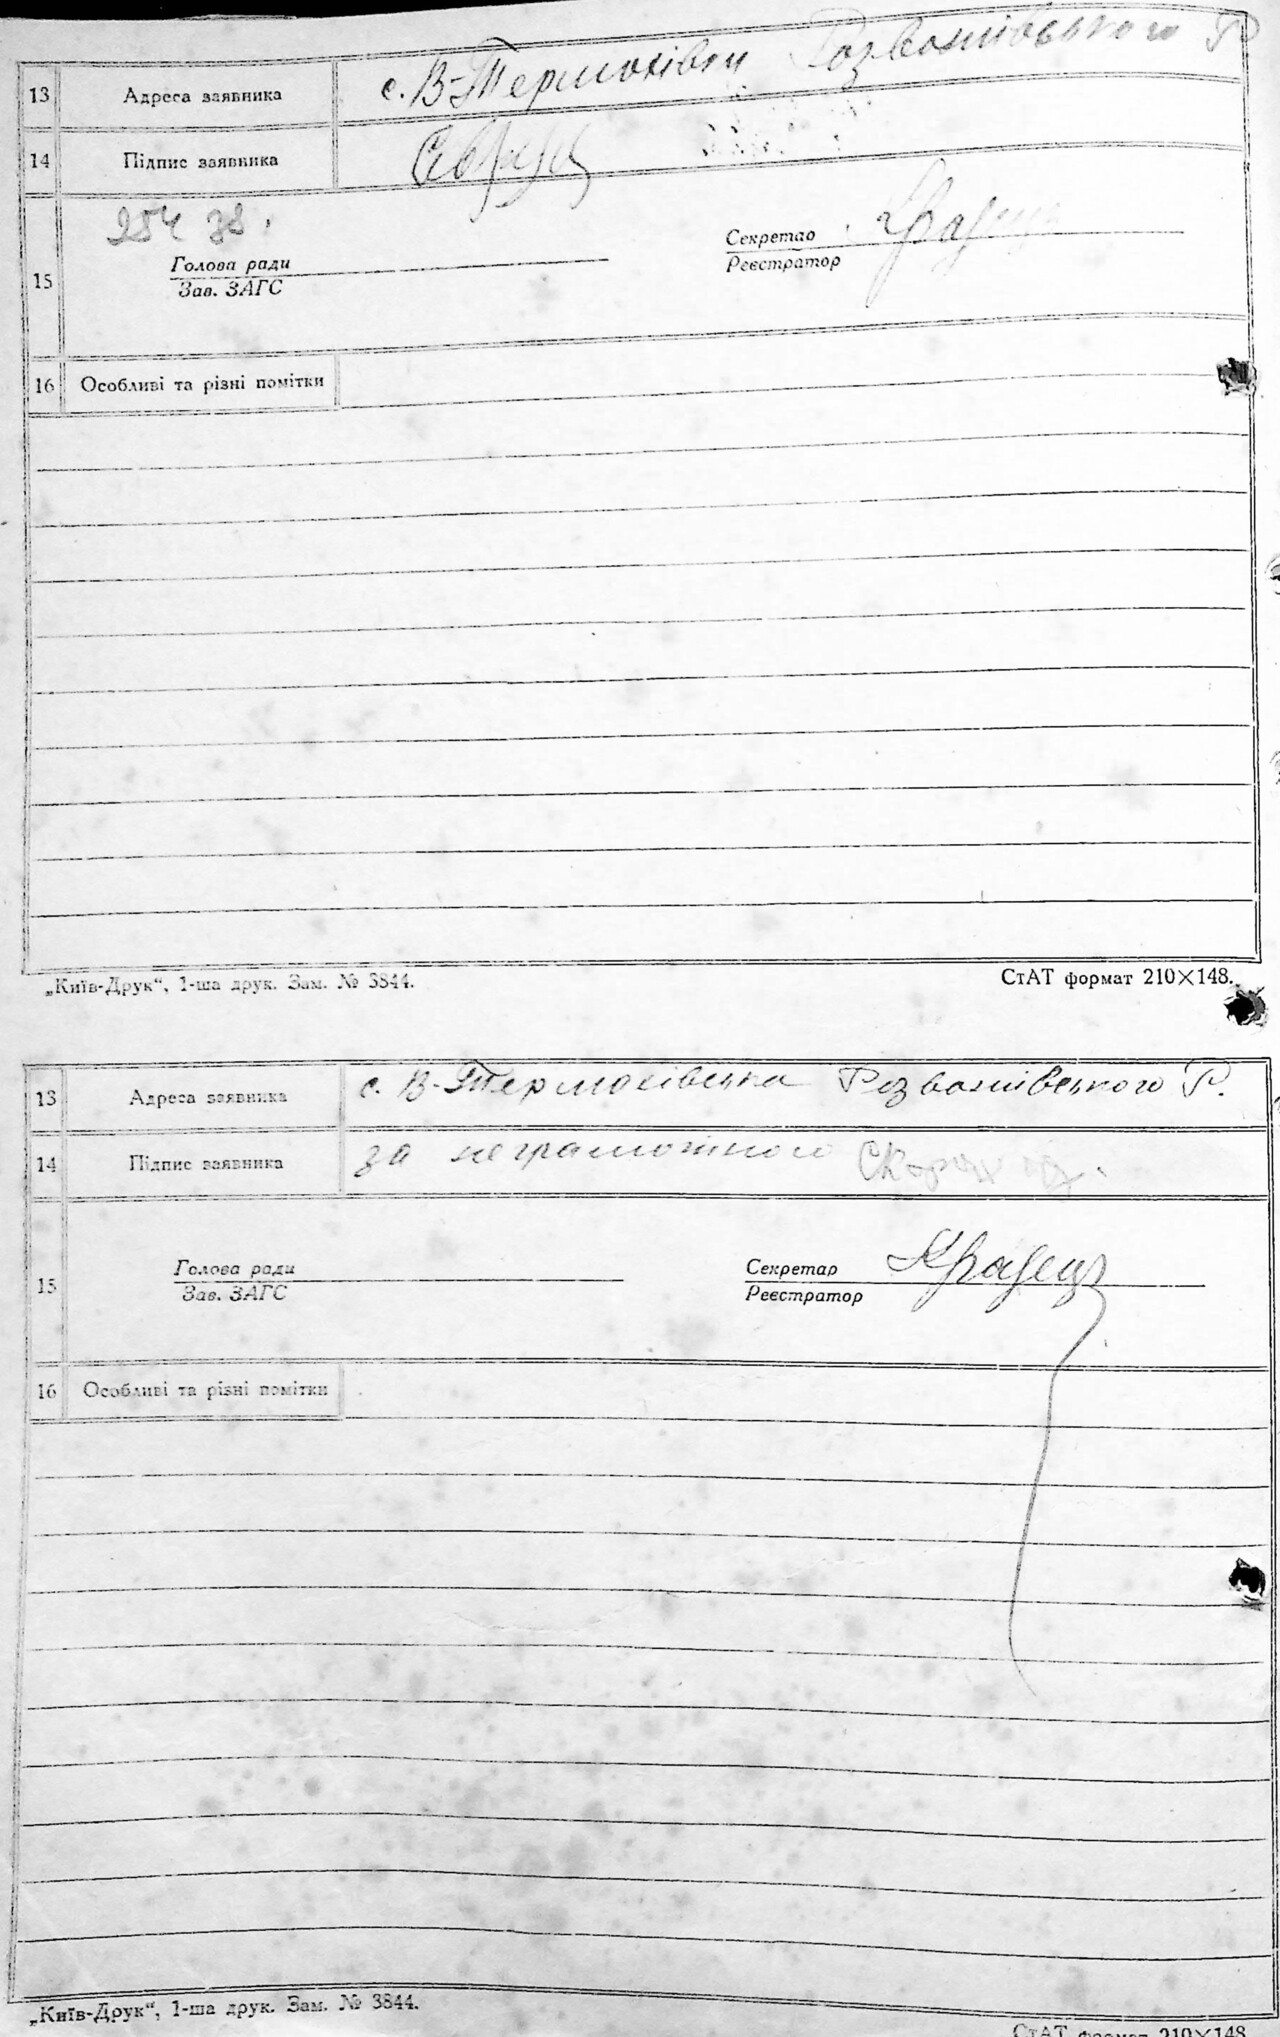 13 Адреса заявника с. В-Термохівки Розважівського Р
14 Підпис заявника
254 зв.
Секретар
Голова ради
Реєстратор
15
Зав. ЗАГС
16 Особливі та різні помітки
„Київ-Друк“, 1-ша друк. Зам. № 3844. СтАТ формат 210×148.
13 Адреса заявника с. В-Термохівська Розважівського Р.
14 Підпис заявника за неграмотного
Голова ради Секретар Кравець
15
Зав. ЗАГС Реєстратор
16 Особливі та різні помітки
„Київ-Друк“, 1-ша друк. Зам. № 3844.
СтАТ формат 210×148